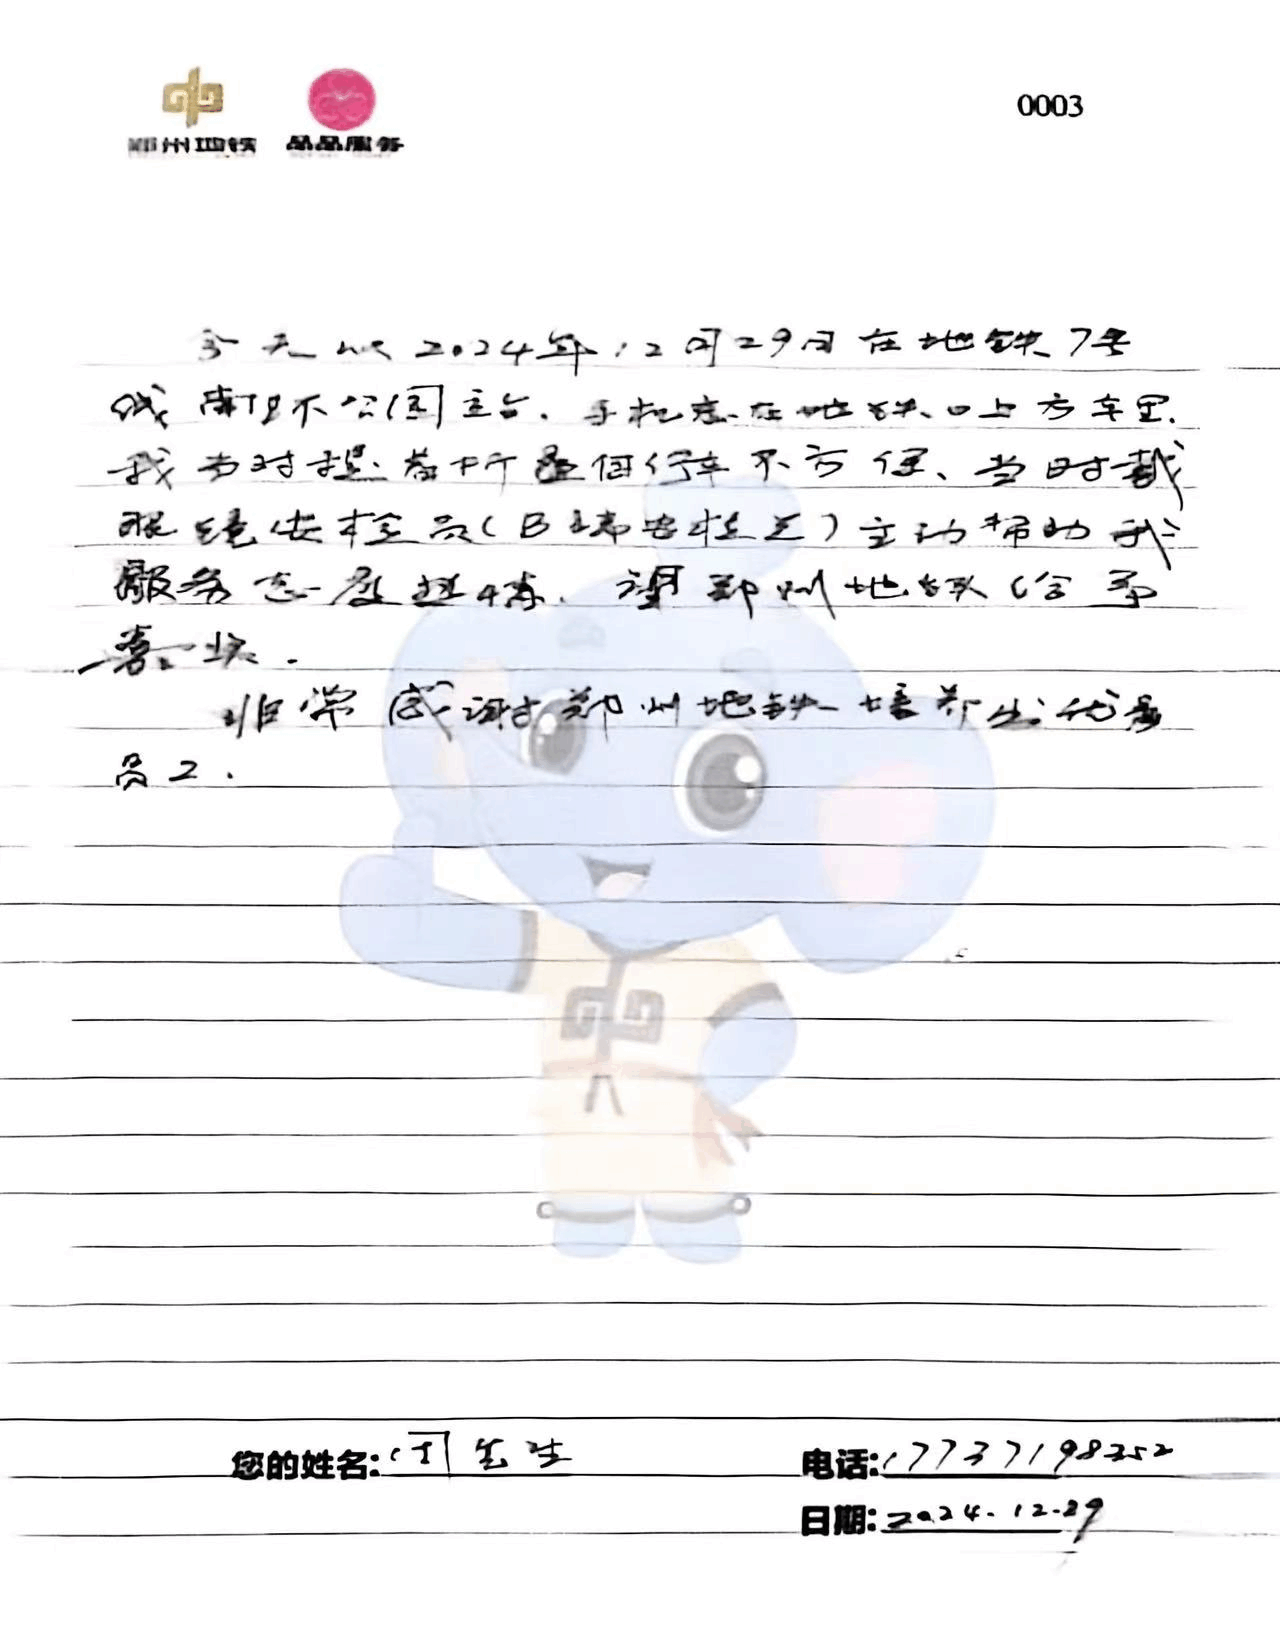 郑州地铁 品品服务
0003
今天 2024年12月29日在地铁7号
线南 公园主台、手机忘在地铁口上方车里.
我当时提着 行车不方便、当时戴
眼镜安检员(B端安检 )主动帮助我
服务态度 . 望郑州地铁给予
嘉 .
非常感谢郑州地铁培养出优秀
员工.
您的姓名: 先生
电话:17737198352
日期:2024.12.29